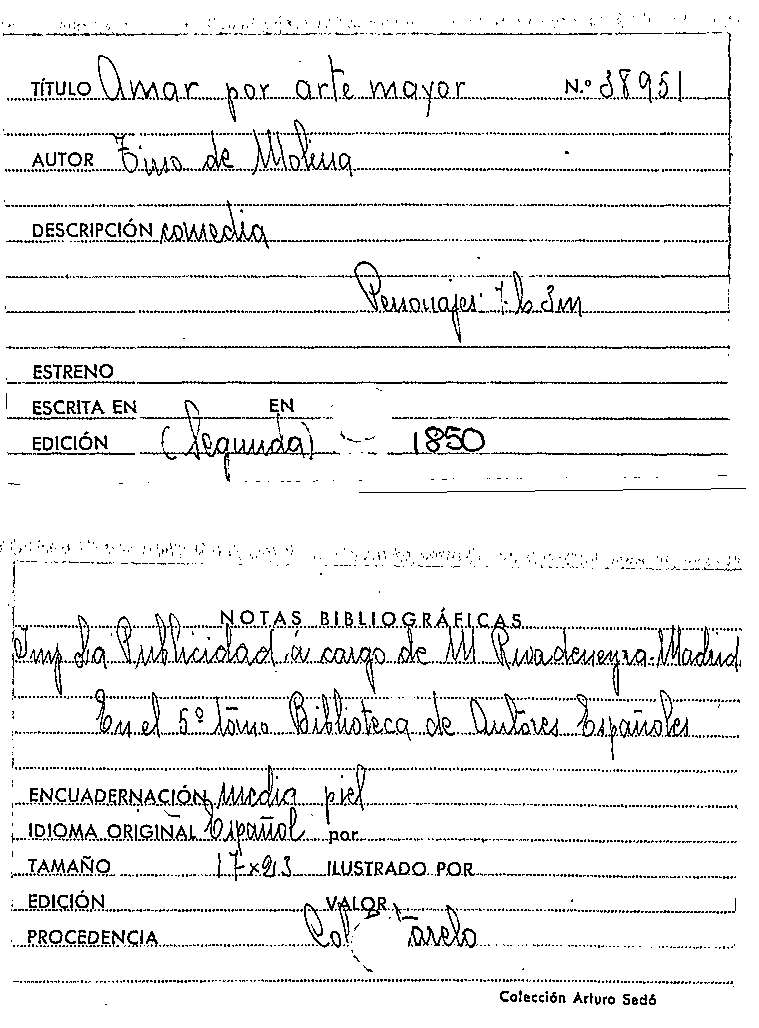 TÍTULO Amar por arte mayor N.º 38951
AUTOR Tirso de Molina
DESCRIPCIÓN comedia
Personajes: 7 h 3m
ESTRENO
ESCRITA EN EN
EDICIÓN (Segunda) 1850
NOTAS BIBLIOGRÁFICAS
Imp La Publicidad á cargo de M Rivadeneyra-Madrid
En el 5º tomo Biblioteca de Autores Españoles
ENCUADERNACIÓN media piel
IDIOMA ORIGINAL Español por
TAMAÑO 17x23 ILUSTRADO POR
EDICIÓN VALOR
PROCEDENCIA Col tarelo
Colección Arturo Sedó